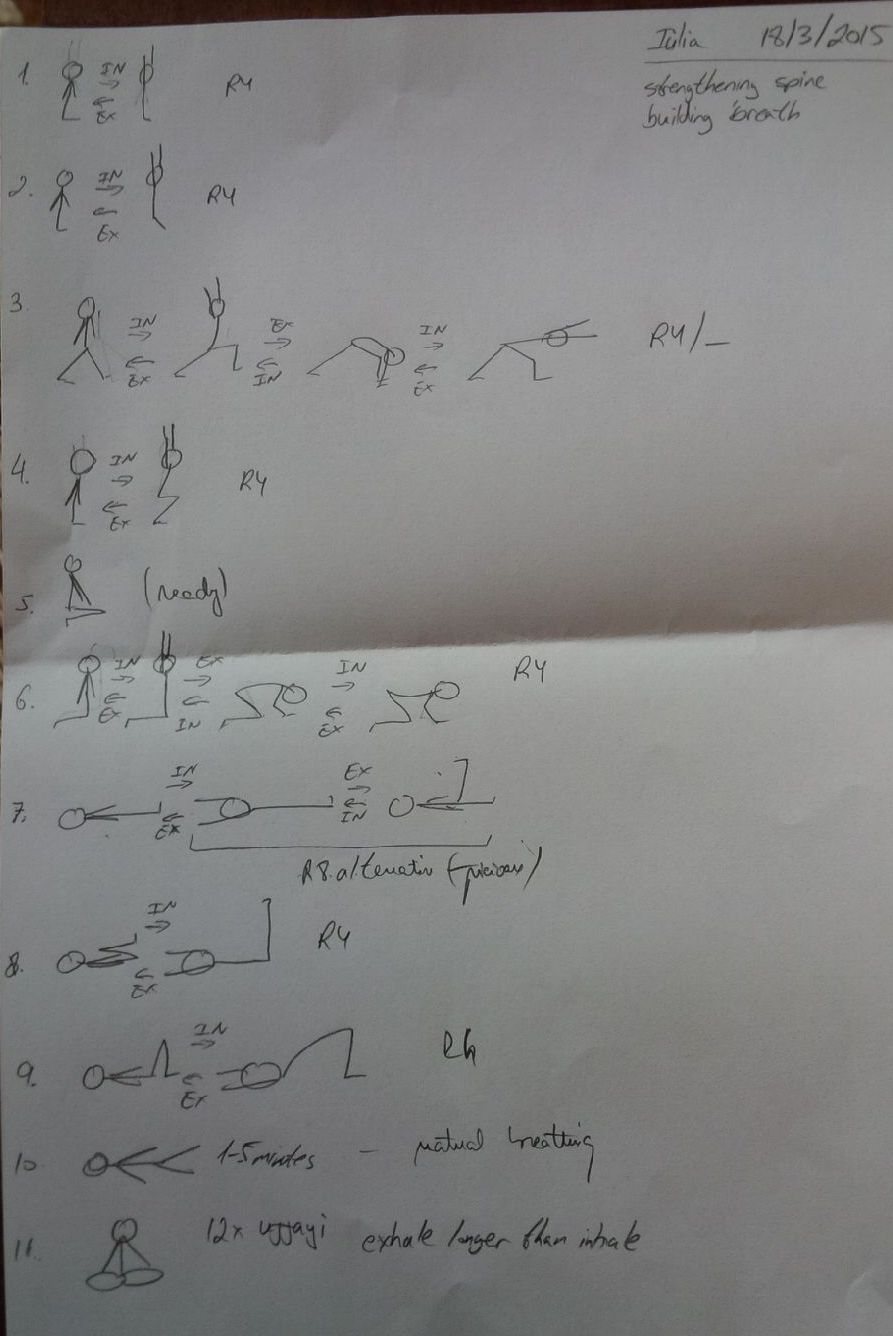 Iulia 18/3/2015
strengthening spine
building breath
1. IN Ex R4
2. IN Ex R4
3. IN Ex Ex IN IN Ex R4/_
4. IN Ex R4
5. (ready)
6. IN Ex Ex IN IN Ex R4
7. IN Ex Ex IN
R8 alternativ (picioare)
8. IN Ex R4
9. IN Ex
10. 1-5 minutes - natural breathing
11. 12x ujjayi exhale longer than inhale